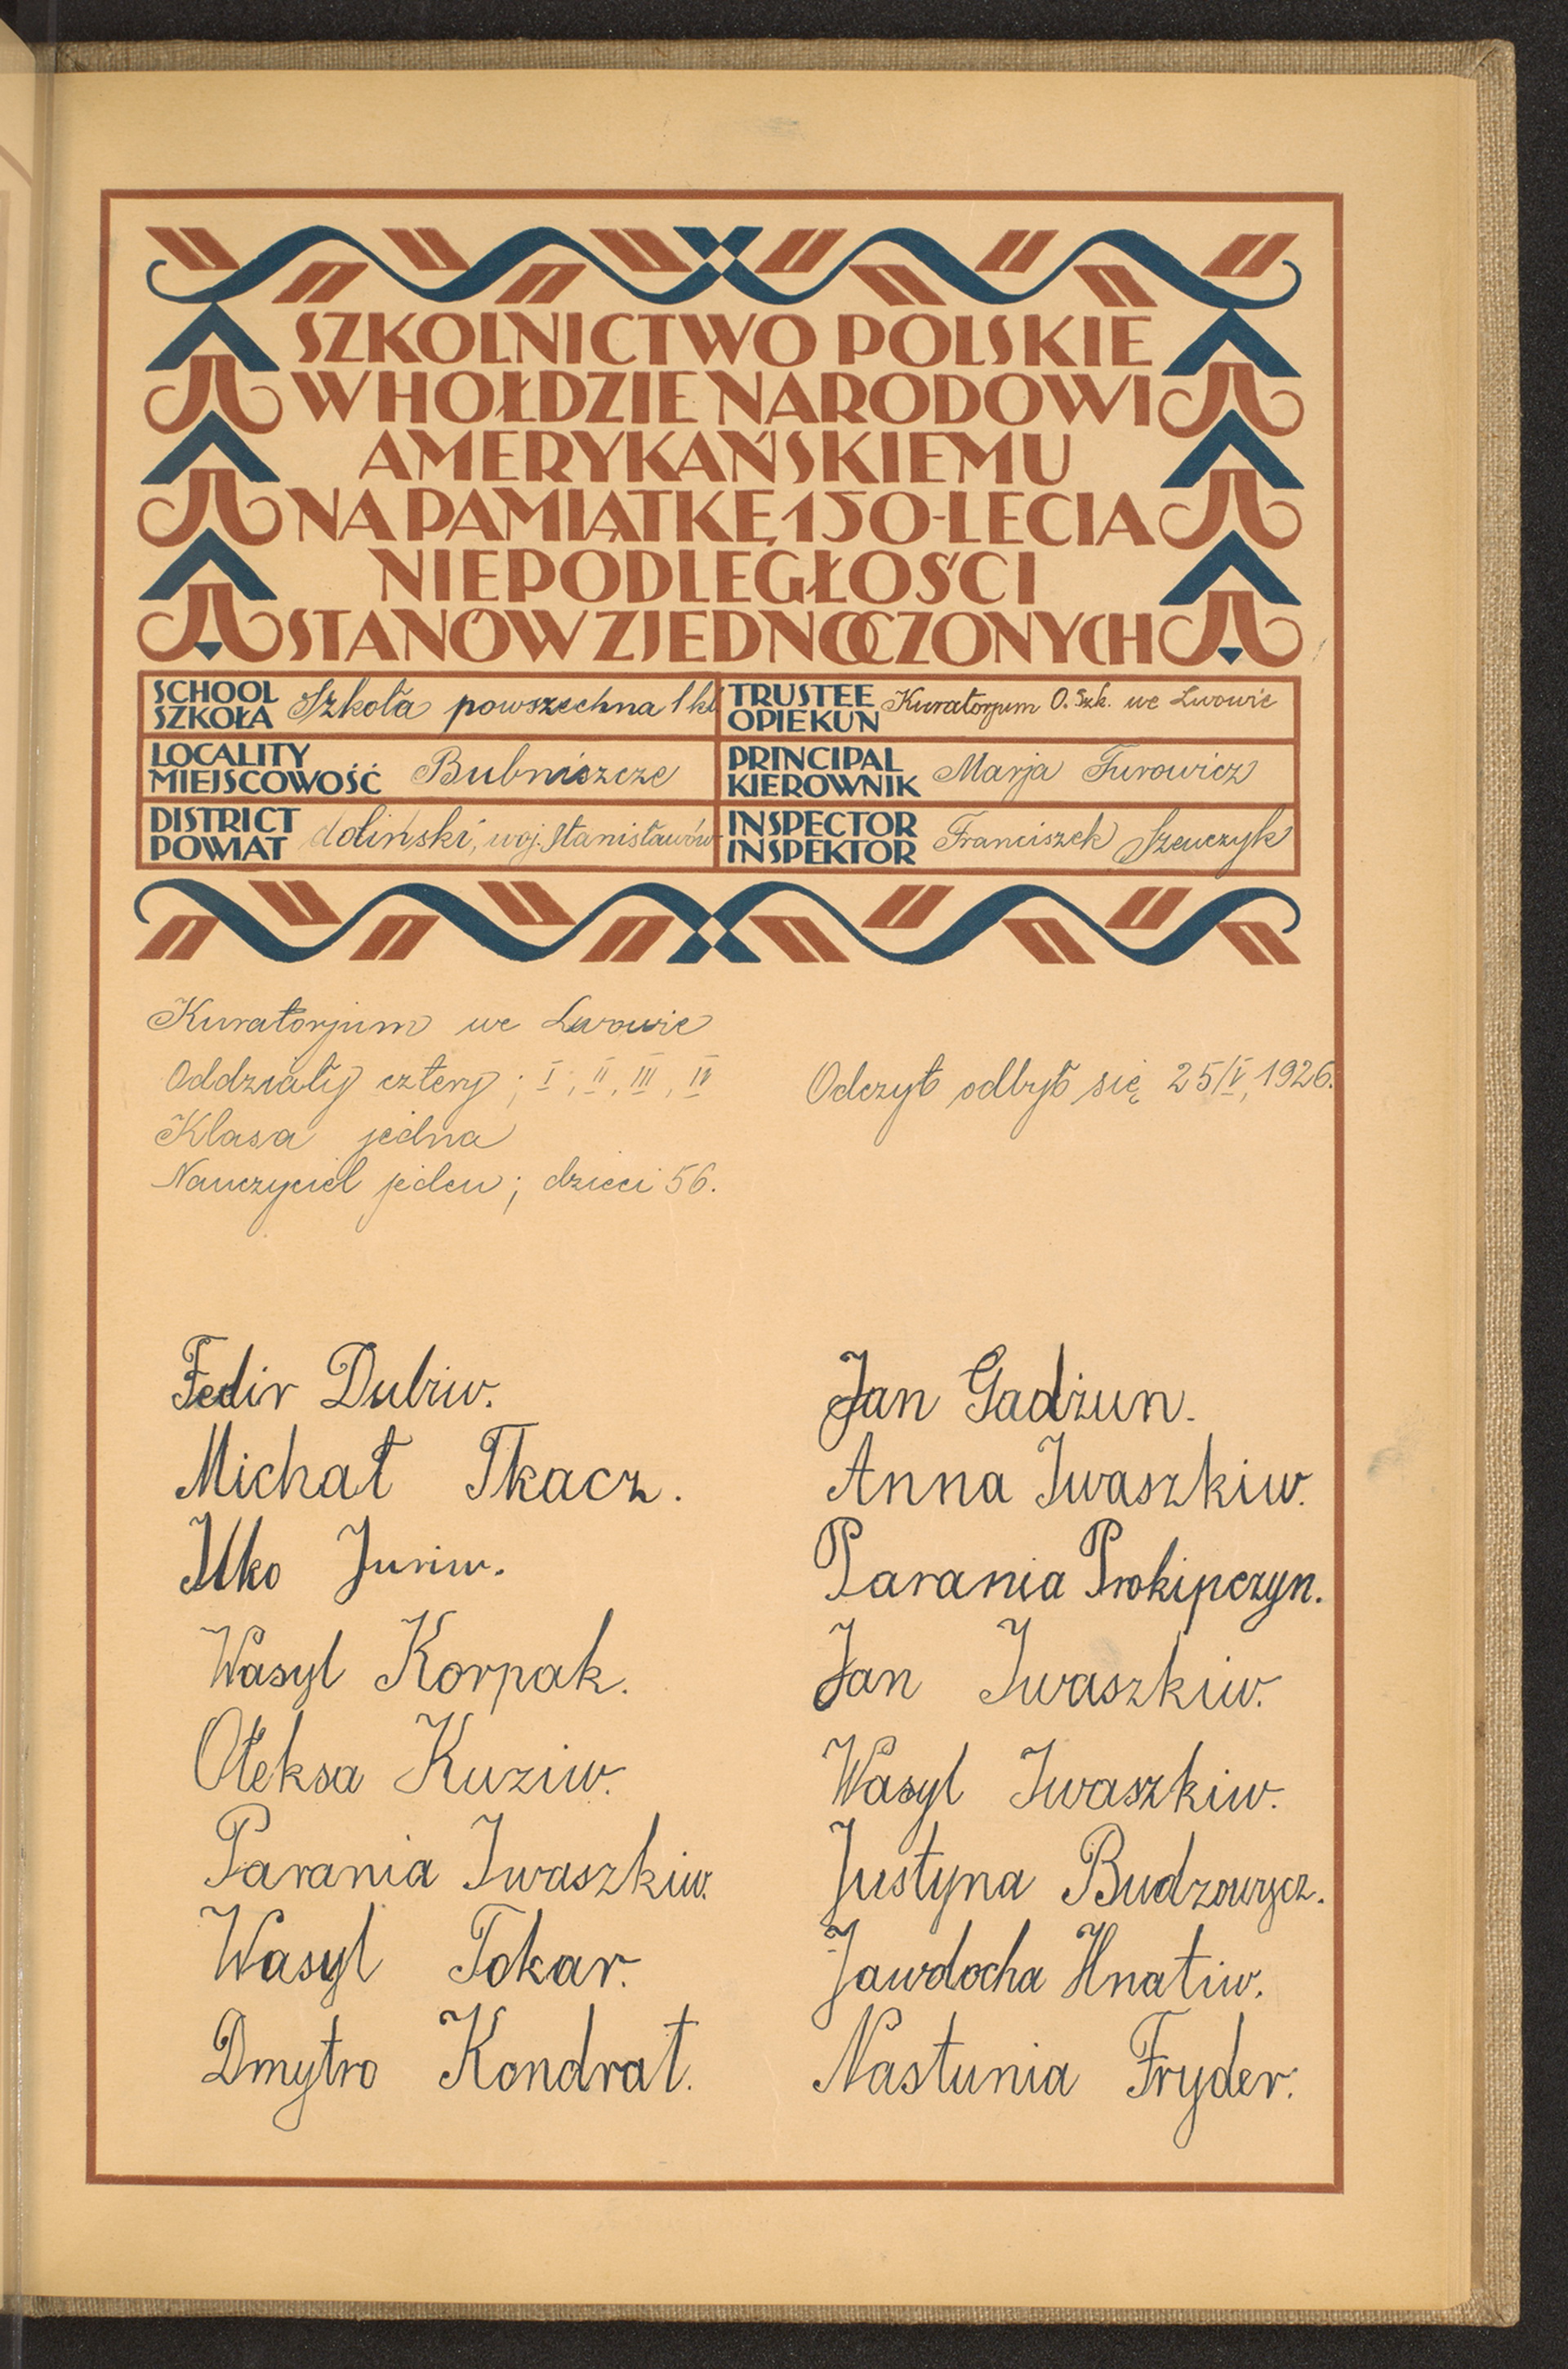 SZKOLNICTWO POLSKIE
W HOŁDZIE NARODOWI
AMERYKAŃSKIEMU
NA PAMIĄTKĘ 150-LECIA
NIEPODLEGŁOŚCI
STANÓW ZJEDNOCZONYCH
SCHOOL
SZKOŁA Szkoła powszechna 1 kl
TRUSTEE
OPIEKUN Kuratorjum O. Szk. we Lwowie
LOCALITY
MIEJSCOWOŚĆ Bubniszcze
PRINCIPAL
KIEROWNIK Marja Turowicz
DISTRICT
POWIAT doliński, woj. Stanisławów
INSPECTOR
INSPEKTOR Franciszek Szewczyk
Kuratorjum we Lwowie
Oddziały cztery; I, II, III, IV
Klasa jedna
Nauczyciel jeden; dzieci 56.
Odczyt odbył się 25/V, 1926.
Fedir Dubiw.
Michał Tkacz.
Ilko Juriw.
Wasyl Korpak.
Ołeksa Kuziw.
Parania Iwaszkiw.
Wasyl Tokar.
Dmytro Kondrat.
Jan Gadżun.
Anna Iwaszkiw.
Parania Prokipczyn.
Jan Iwaszkiw.
Wasyl Iwaszkiw.
Justyna Budzowycz.
Jawdocha Hnatiw.
Nastunia Fryder.